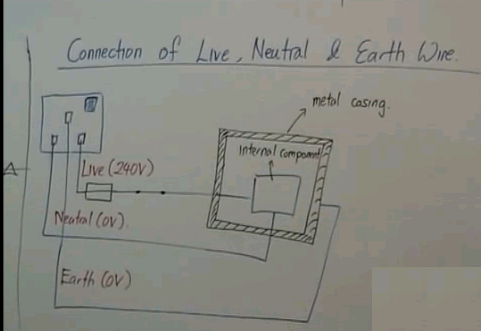 Connection of Live, Neutral & Earth Wire.
metal casing.
Internal component
Live (240V)
Neutral (0V).
Earth (0V)